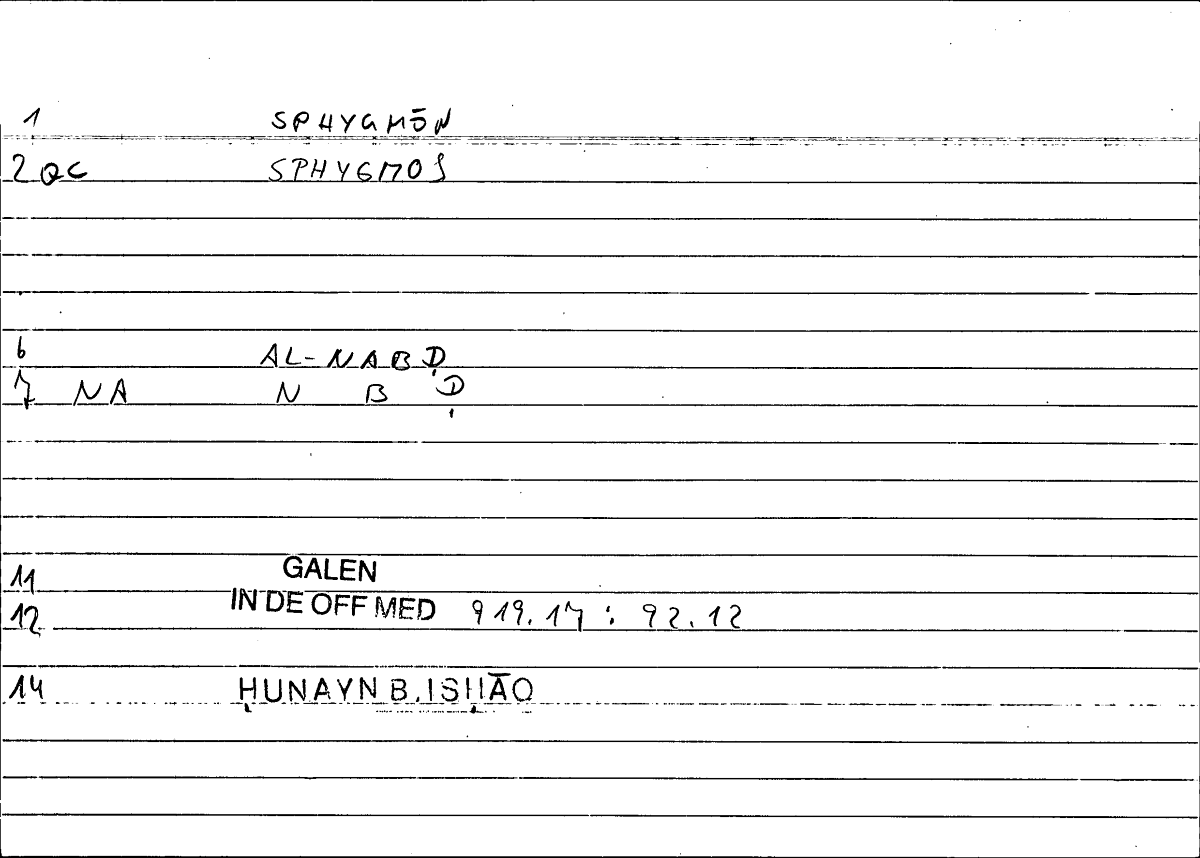 1 SPHYGMŌN
2 QC SPHYGMOS
6 AL-NABḌ
7 NA N B Ḍ
11 GALEN
12 IN DE OFF MED 919.17 : 92.12
14 ḤUNAYN B. ISḤĀQ